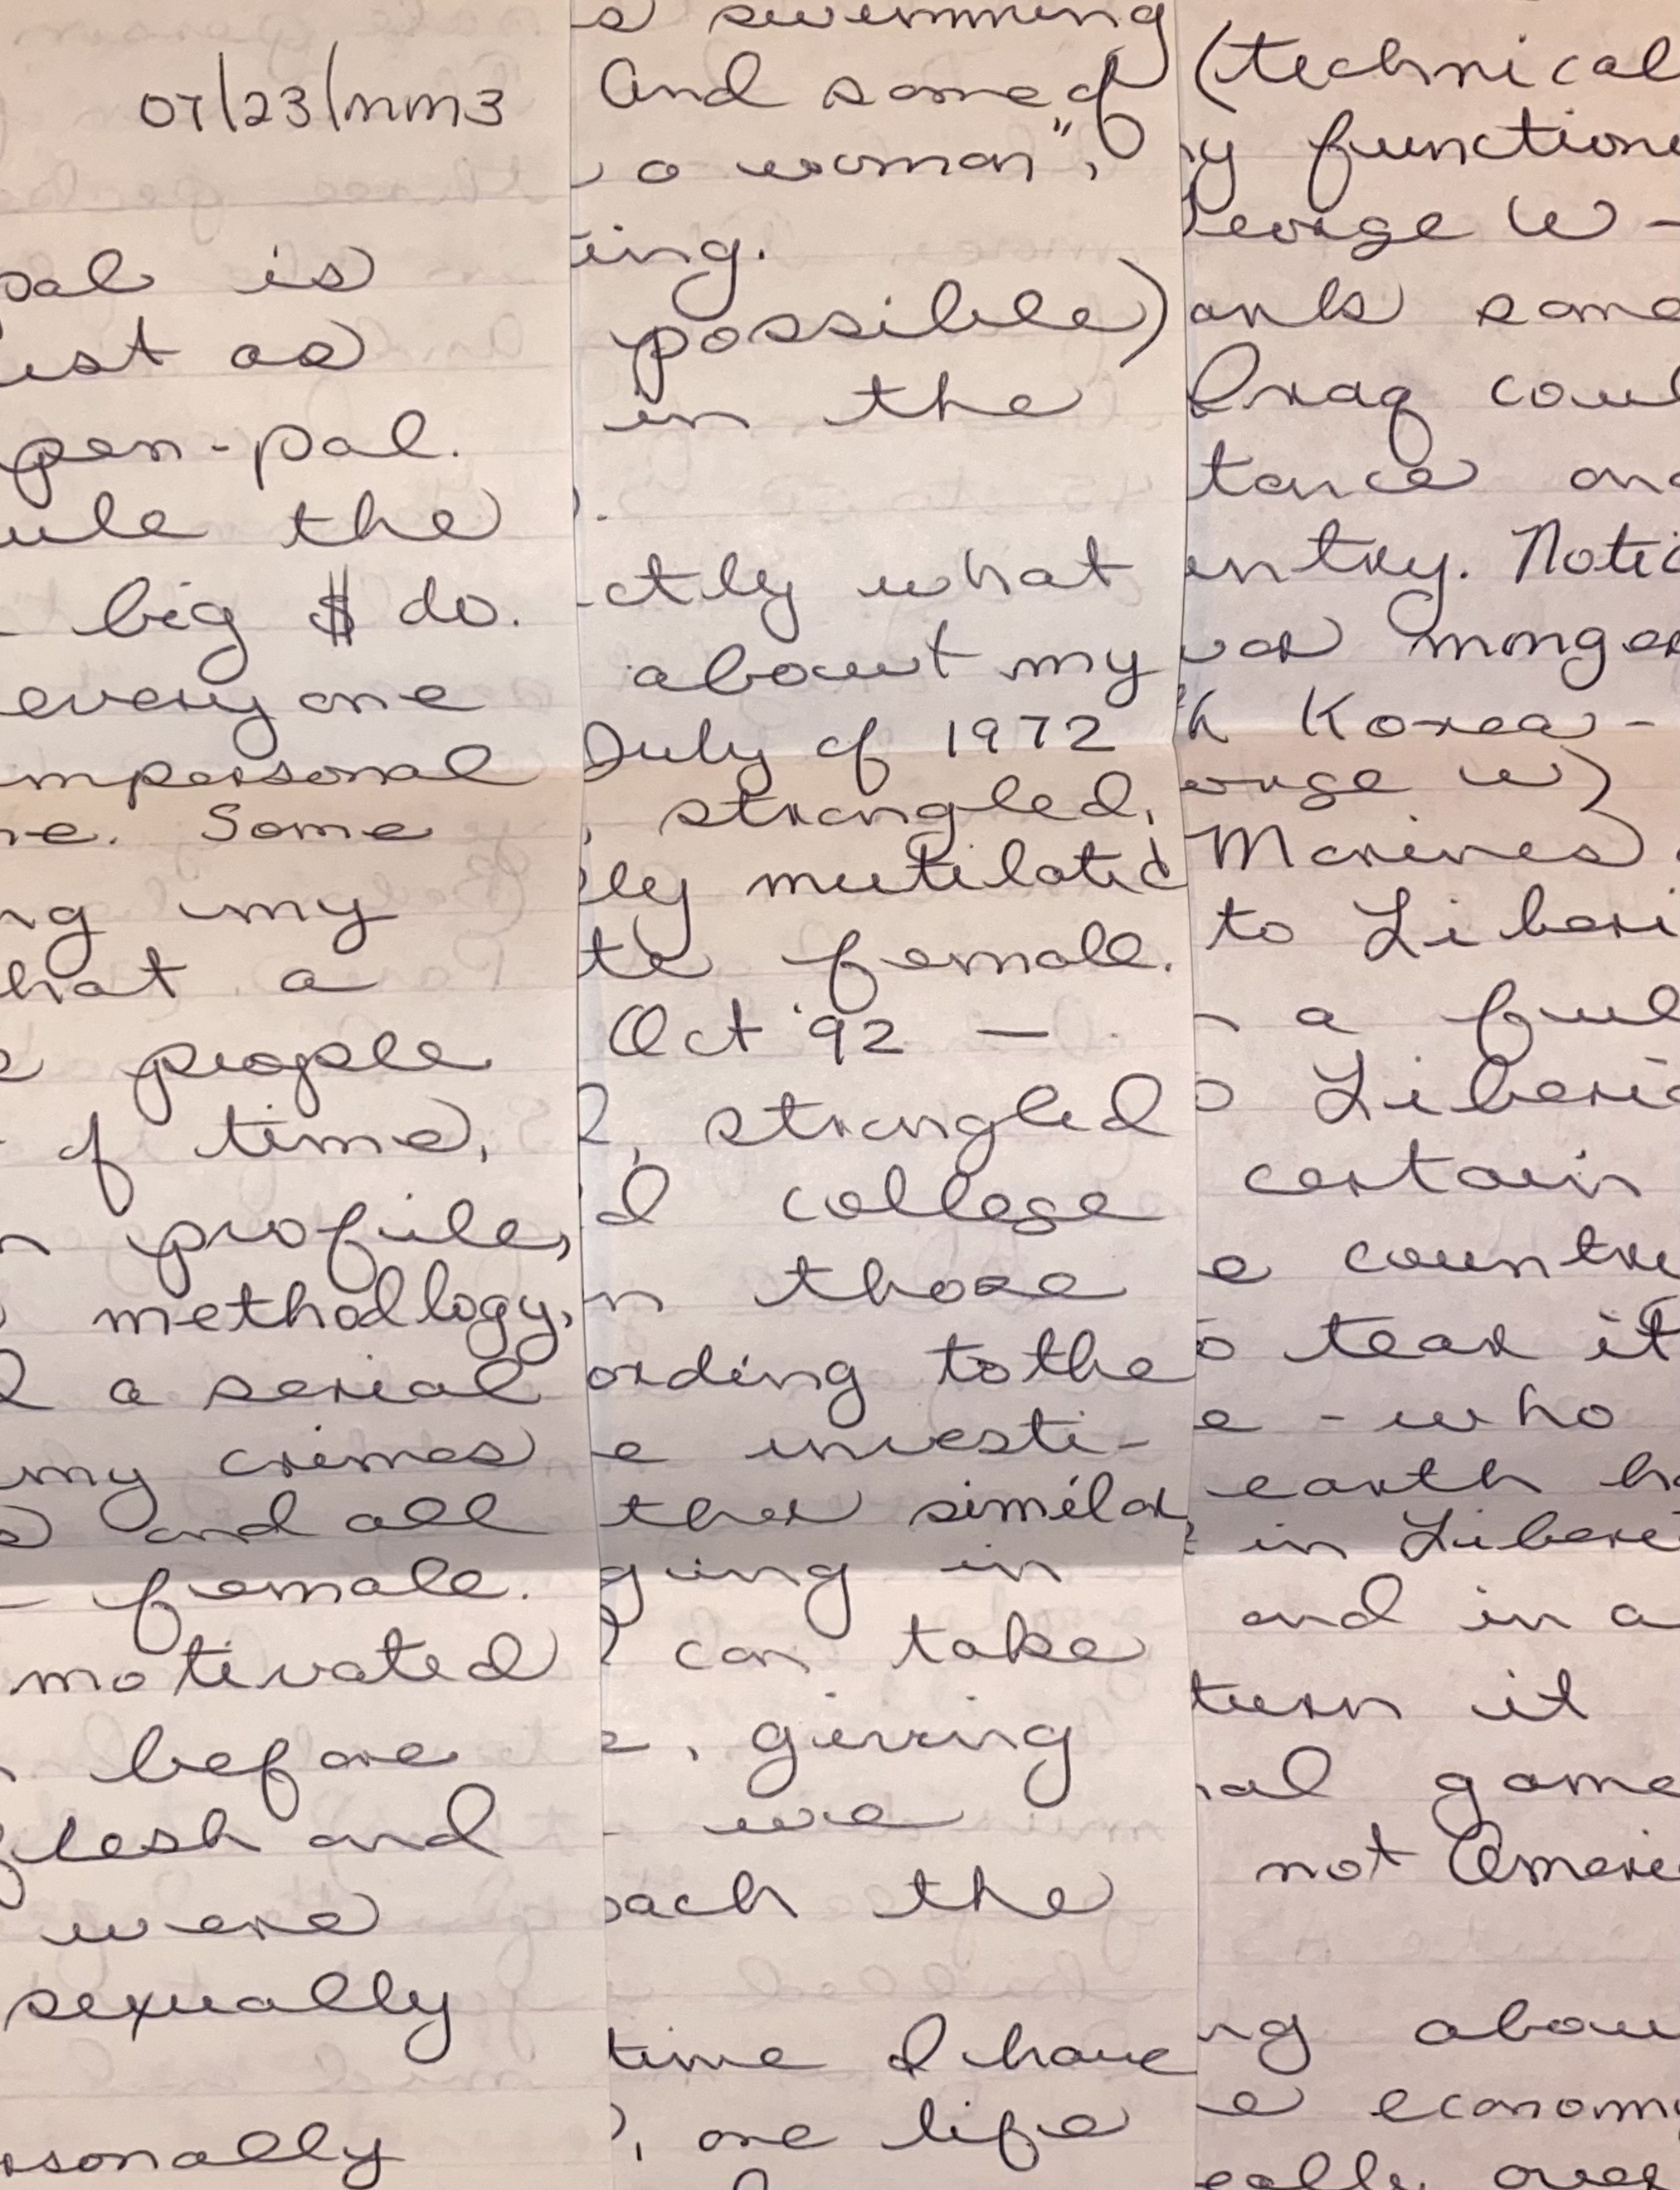 07/23/mm3
pal is
ust as
pen-pal.
ule the
big $ do.
everyone
impersonal
ne. Some
ng my
hat a
e people
of time,
n profile,
methodlogy,
d a serial
my crimes
s and all
- female.
motivated
before
flesh and
were
sexually
rsonally
s swimming
And some of
o woman",
ting.
possible)
in the
ctly what
about my
July of 1972
, strangled,
ely mutilated
te female.
Oct '92 -
d, strangled
d college
n those
ording to the
e investi-
ther similar
ging in
I can take
e, giving
- we
oach the
time I have
), one life
(technical
ry functione
George W -
anks some
Iraq coul
tance and
untry. Notic
war monger
h Korea -
orge W)
Marines
to Liberi
- a full
o Liberia
certain
e country
o tear it
e - who
earth ha
in Liberi
and in a
turn it
nal game
not Ameri
ng abou
e economy
eally over